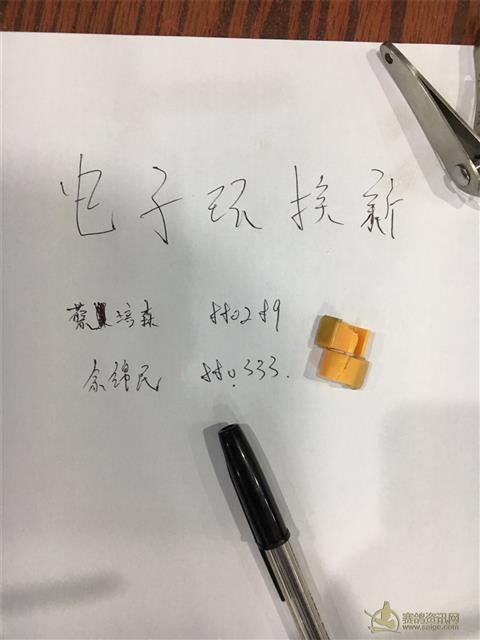 电子环换新
蔡培森 880289
余锦民 880333.
赛鸽资讯网
www.saige.com